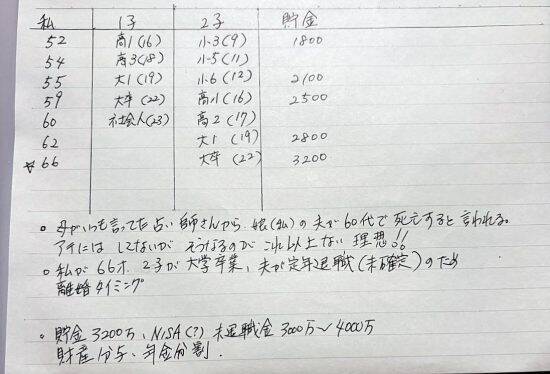 私 1子 2子 貯金
52 高1(16) 小3(9) 1800
54 高3(18) 小5(11)
55 大1(19) 小6(12) 2100
59 大卒(22) 高1(16) 2500
60 社会人(23) 高2(17)
62 大1(19) 2800
☆66 大卒(22) 3200
○ 母がいつも言ってた占い師さんから、娘(私)の夫が60代で死亡すると言われる。
アテにはしてないがそうなるのがこれ以上ない理想!!
○ 私が66才、2子が大学卒業、夫が定年退職(未確定)のため
離婚タイミング
○ 貯金3200万、NISA(?) 夫退職金3000万〜4000万
財産分与、年金分割.